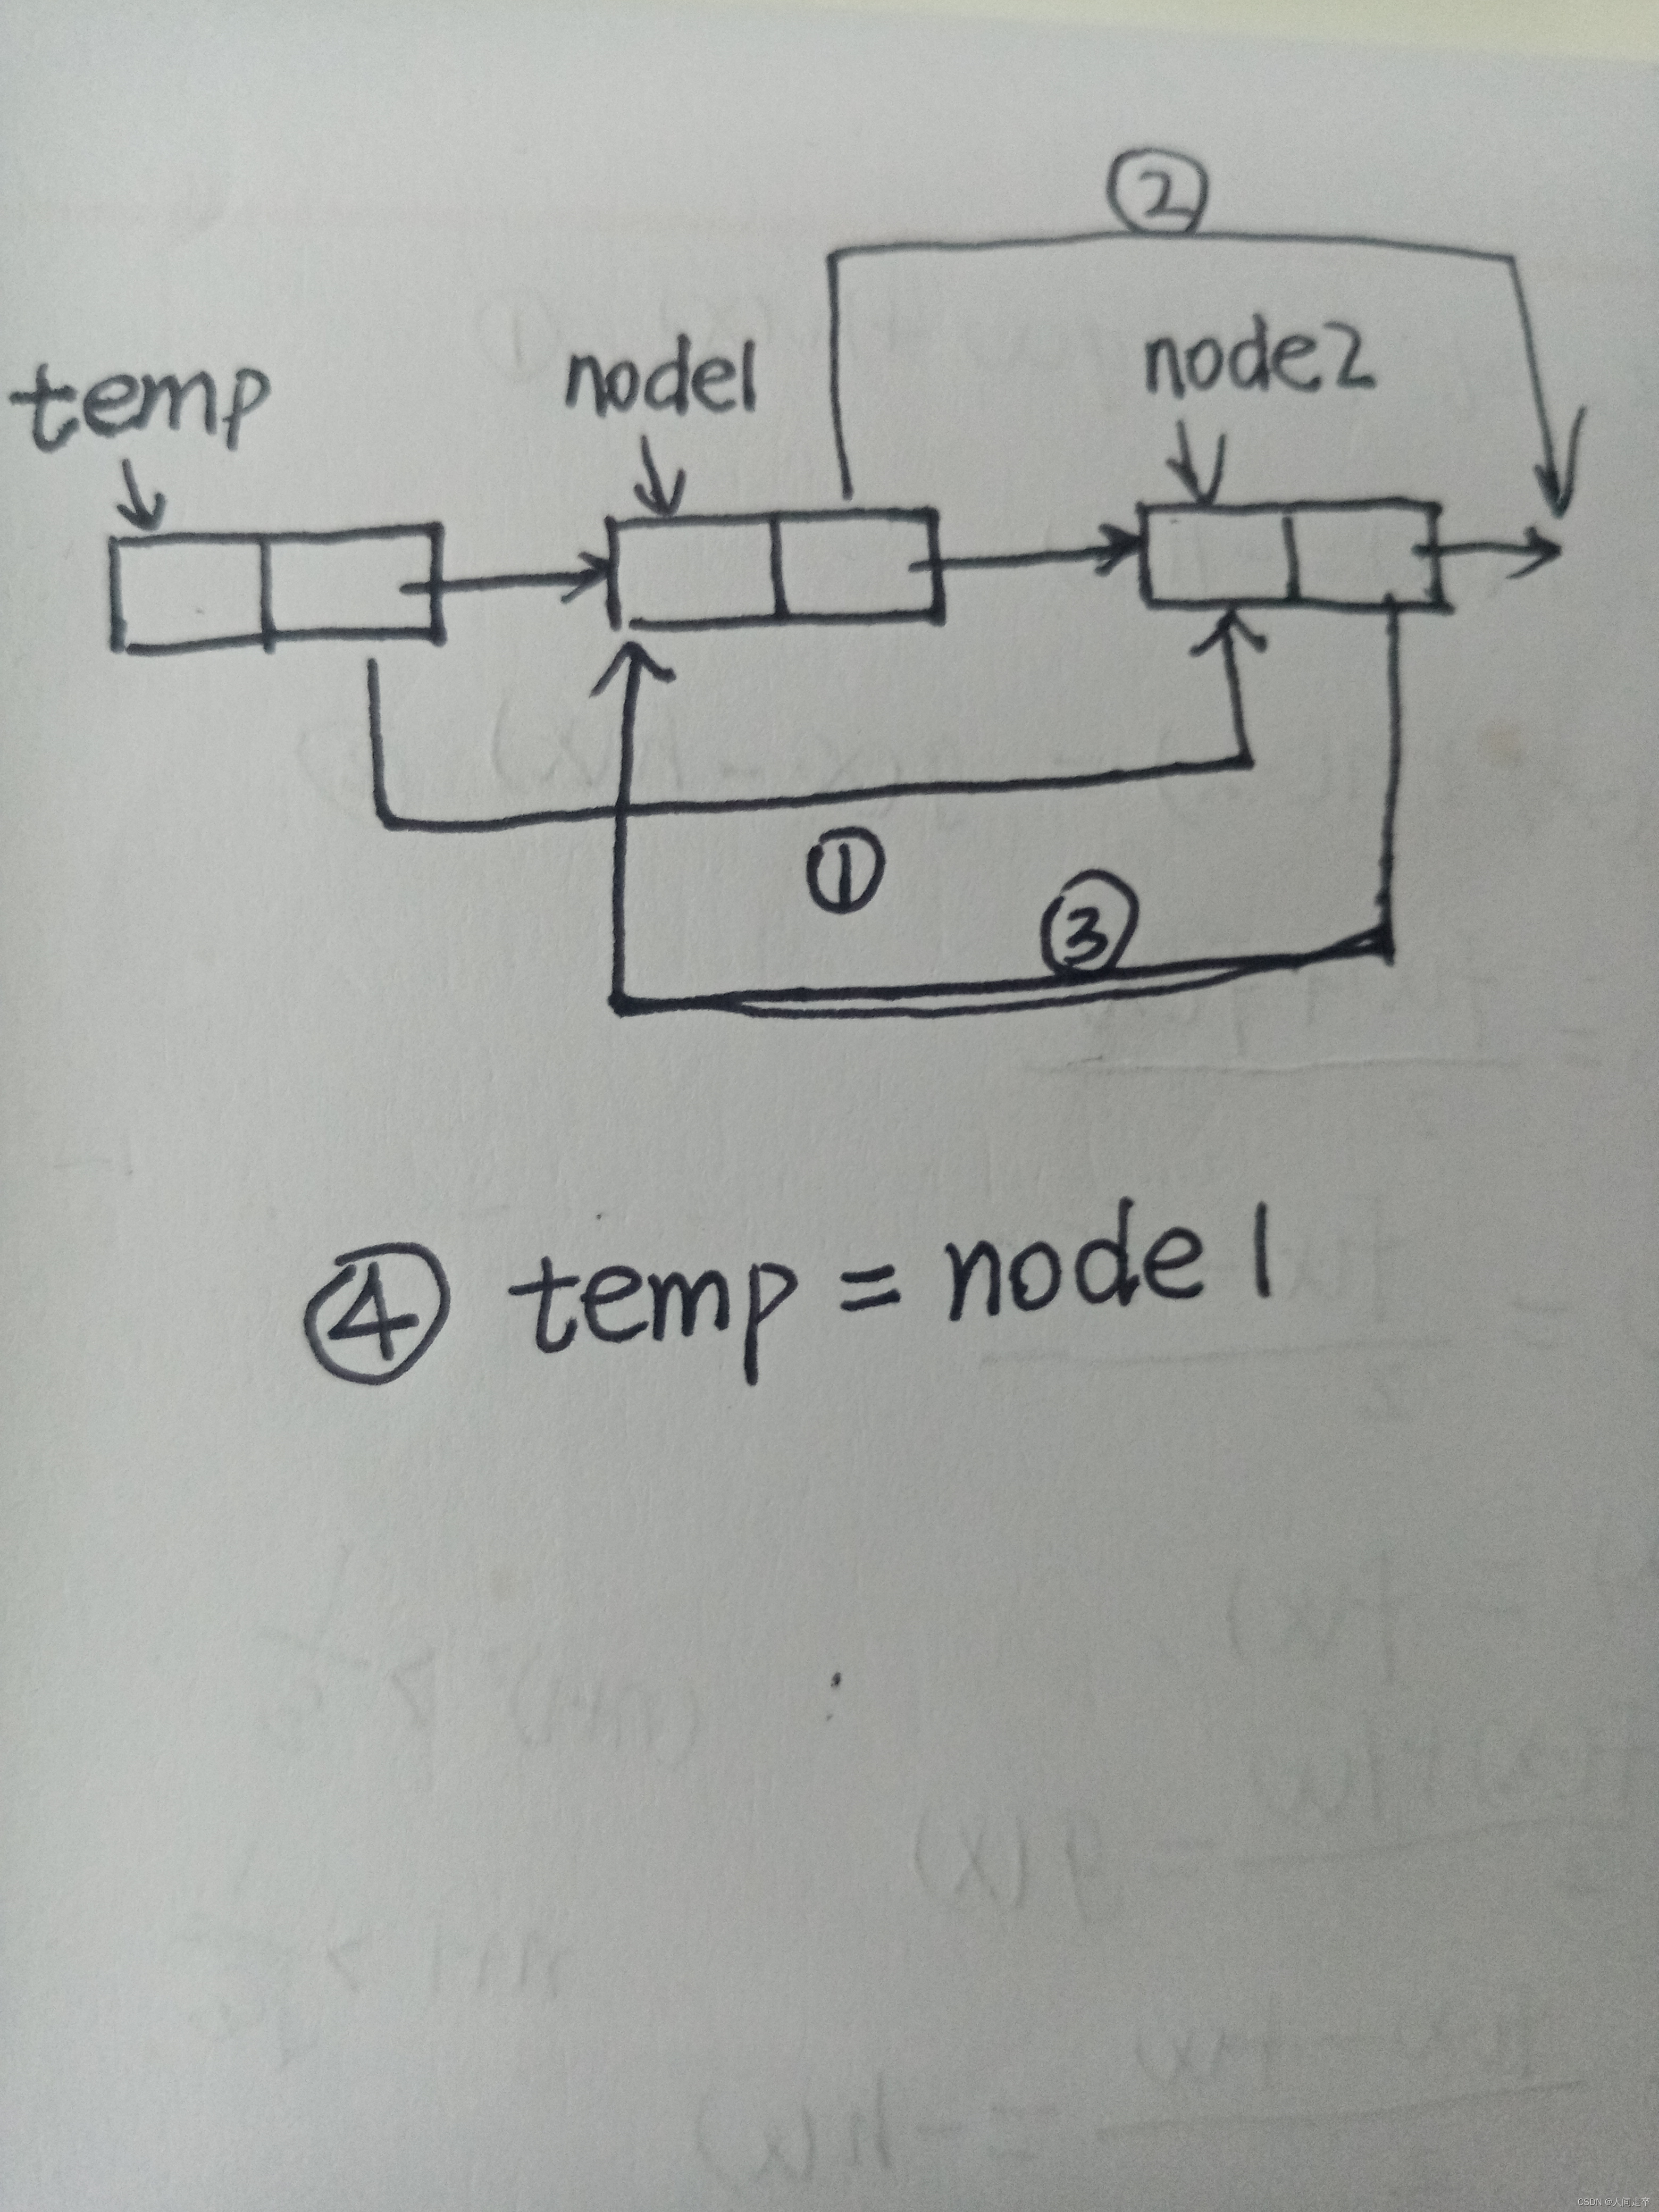 ②
temp node1 node2
①
③
④ temp = node1
CSDN @人间走卒